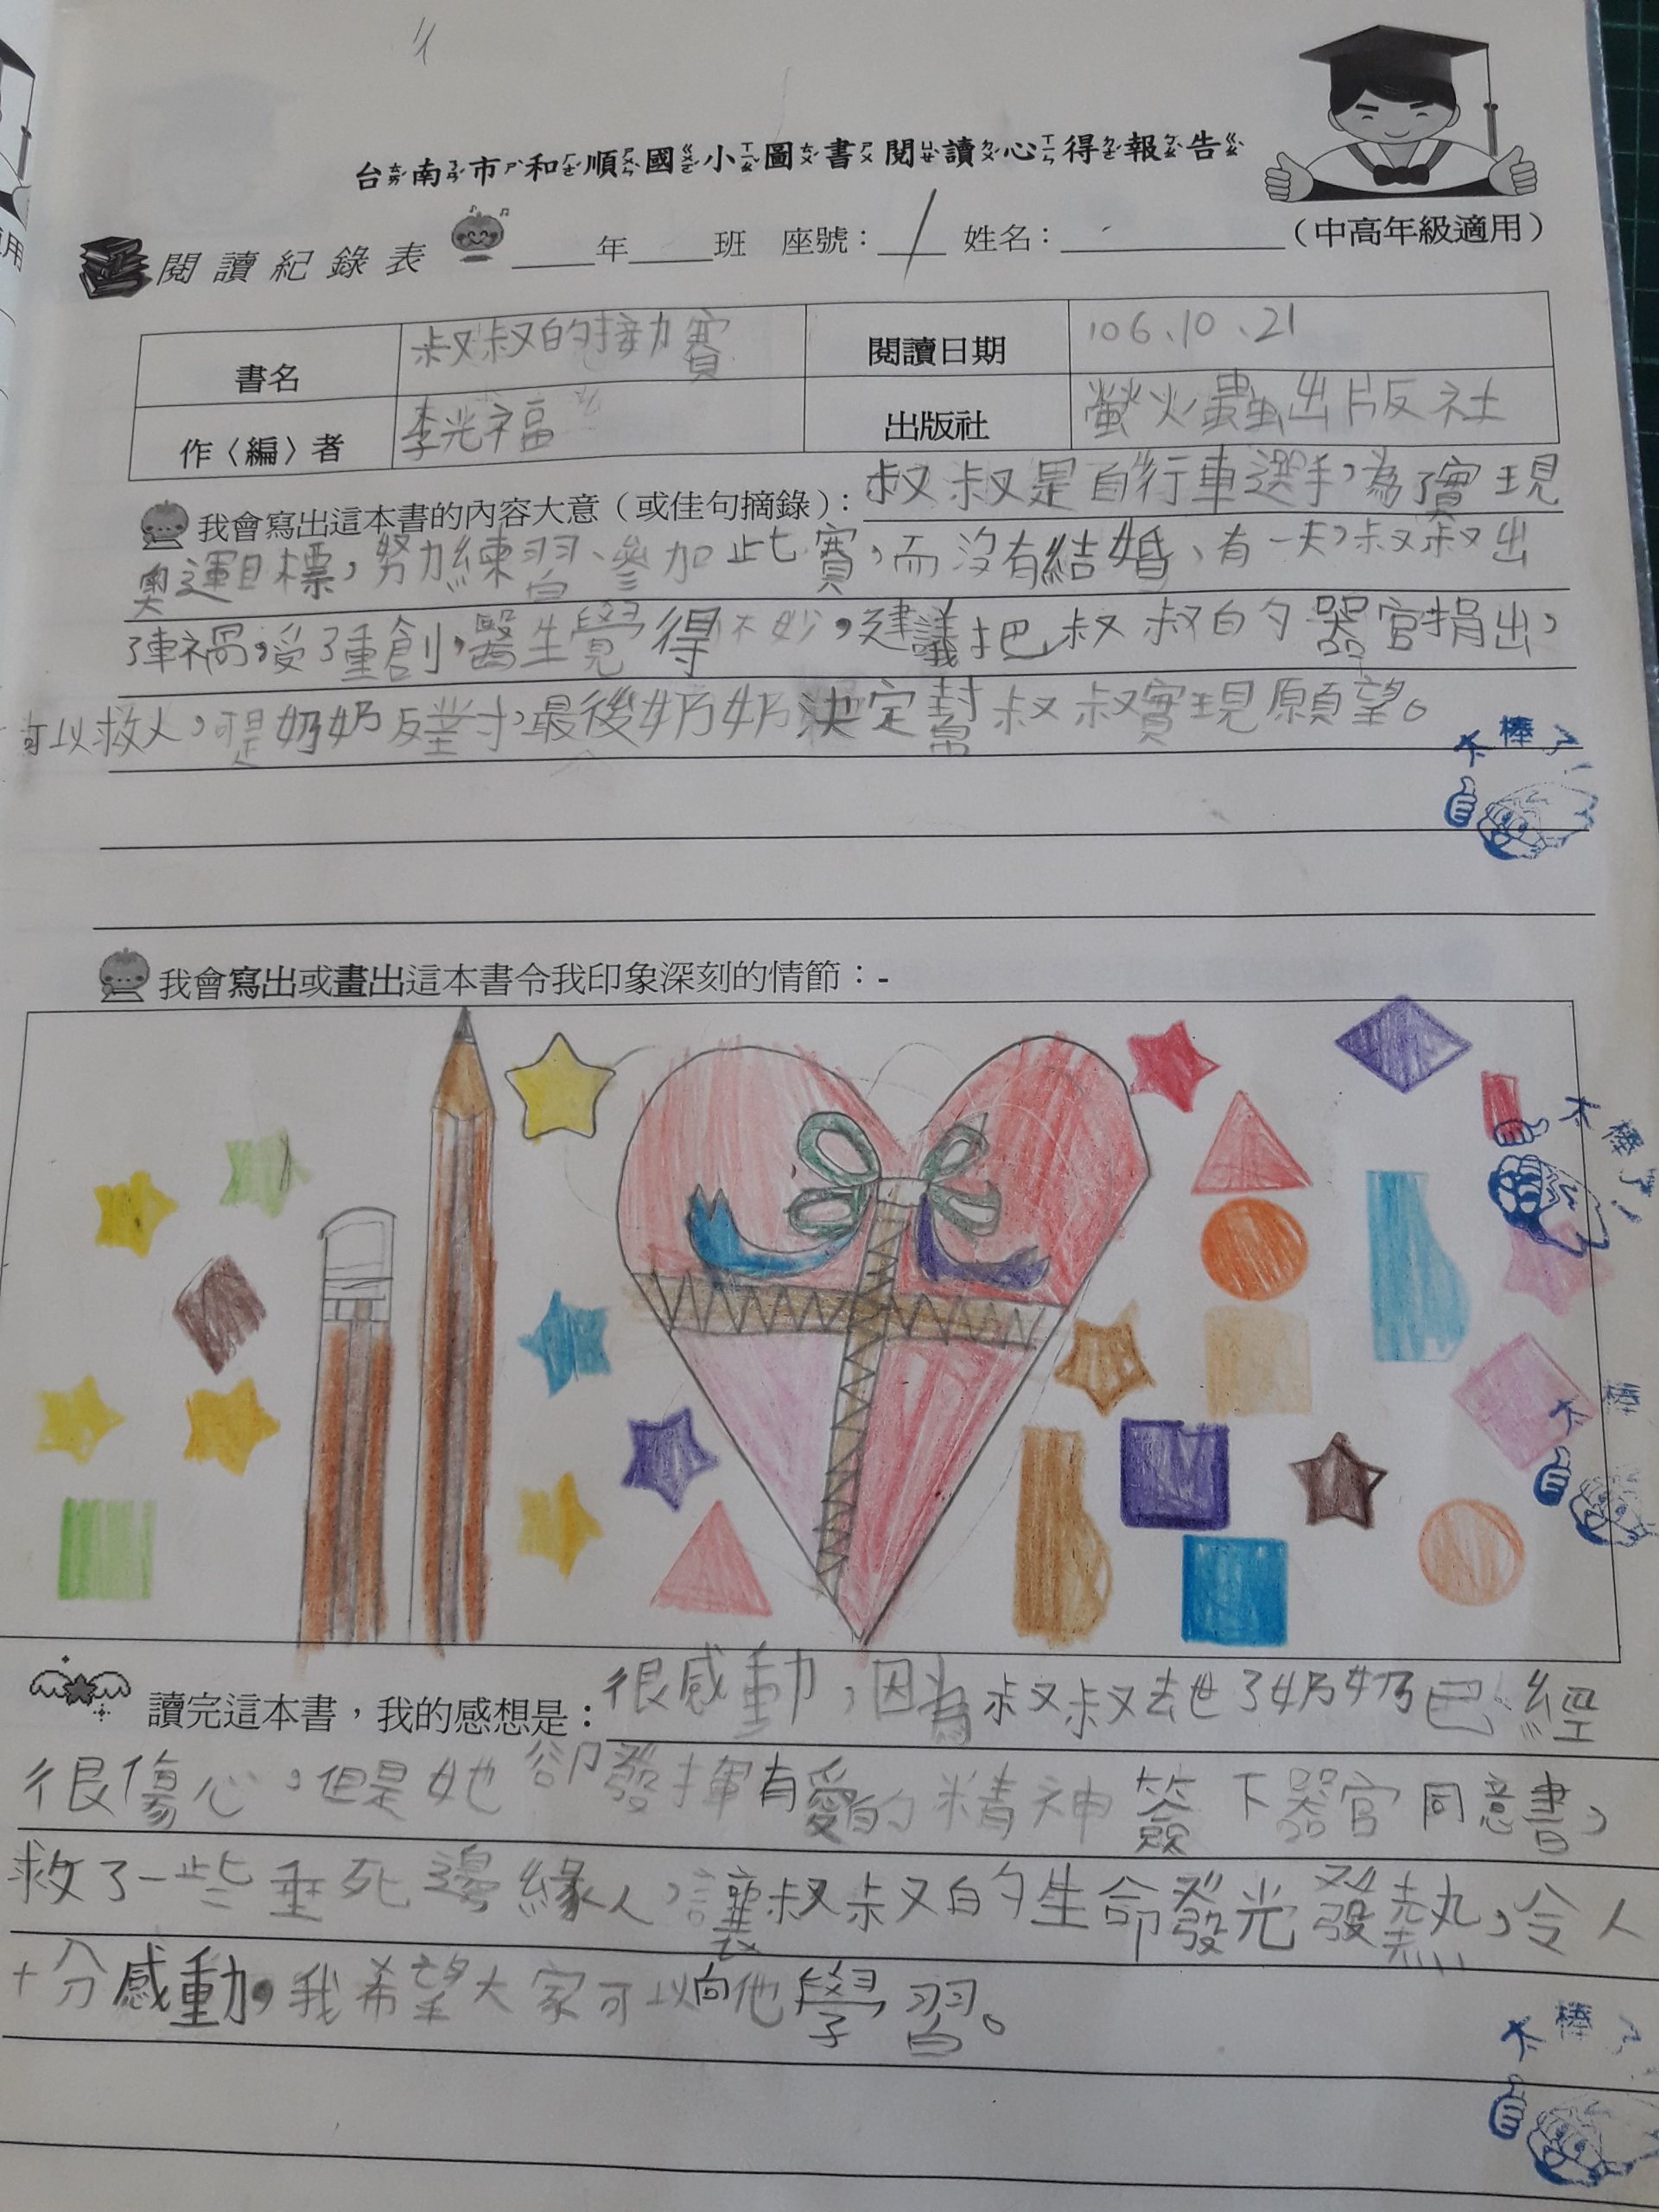 台南市和順國小圖書閱讀心得報告
閱讀紀錄表 ____年____班 座號：____ 姓名：________（中高年級適用）
書名 叔叔的接力賽 閱讀日期 106、10、21
作〈編〉者 李光福 出版社 螢火蟲出版社
我會寫出這本書的內容大意（或佳句摘錄）：叔叔是自行車選手，為了實現
奧運目標，努力練習、參加比賽，而沒有結婚、有一天，叔叔出
了車禍，受了重創，醫生覺得不妙，建議把叔叔的器官捐出，
可以救人，可是奶奶反對，最後奶奶決定幫叔叔實現願望。
太棒了
我會寫出或畫出這本書令我印象深刻的情節：-
太棒了！
太棒
讀完這本書，我的感想是：很感動，因為叔叔去世了奶奶已經
很傷心，但是她卻發揮有愛的精神簽下器官同意書，
救了一些垂死邊緣人，讓叔叔的生命發光發熱，令人
十分感動，我希望大家可以向他學習。
太棒了